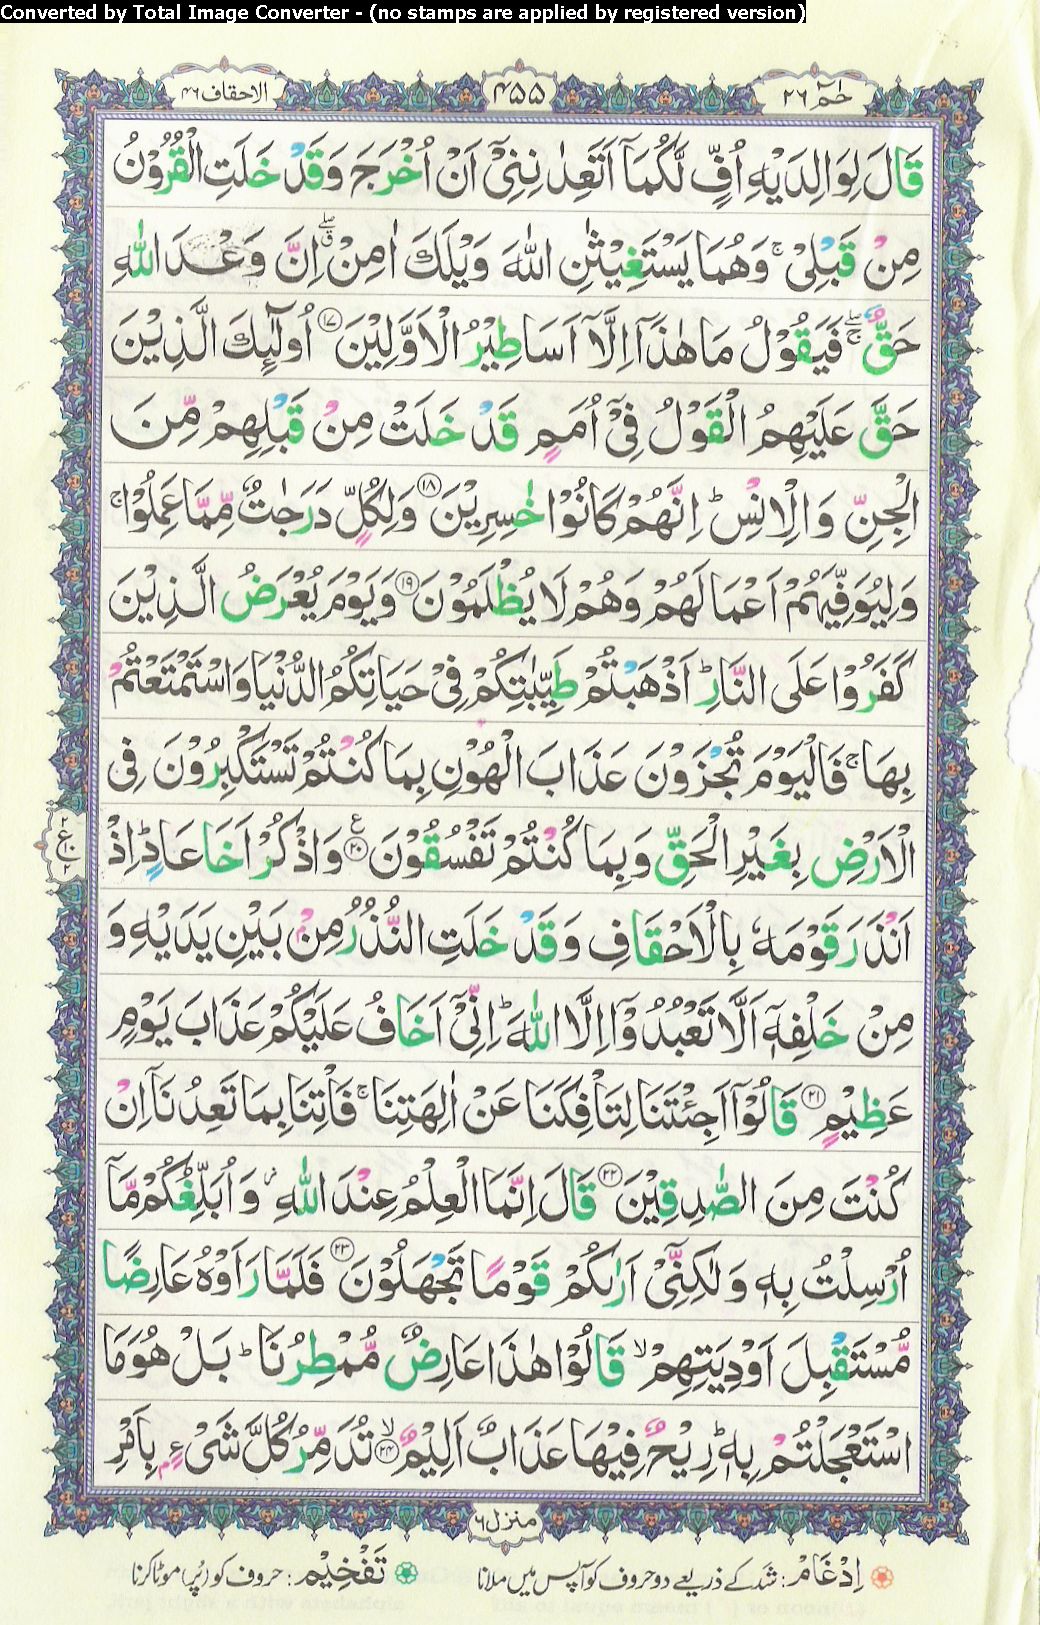 Converted by Total Image Converter - (no stamps are applied by registered version)
الاحقاف ۴۶ ۴۵۵ حٰمٓ ۲۶
قَالَ لِوَالِدَيْهِ اُفٍّ لَّكُمَآ اَتَعِدٰنِنِيْٓ اَنْ اُخْرَجَ وَقَدْ خَلَتِ الْقُرُوْنُ
مِنْ قَبْلِيْ ۚ وَهُمَا يَسْتَغِيْثٰنِ اللّٰهَ وَيْلَكَ اٰمِنْ ۖق اِنَّ وَعْدَ اللّٰهِ
حَقٌّ ۖۚ فَيَقُوْلُ مَا هٰذَآ اِلَّآ اَسَاطِيْرُ الْاَوَّلِيْنَ ⁧۱۷⁩ اُولٰٓئِكَ الَّذِيْنَ
حَقَّ عَلَيْهِمُ الْقَوْلُ فِيْٓ اُمَمٍ قَدْ خَلَتْ مِنْ قَبْلِهِمْ مِّنَ
الْجِنِّ وَالْاِنْسِ ؕ اِنَّهُمْ كَانُوْا خٰسِرِيْنَ ⁧۱۸⁩ وَلِكُلٍّ دَرَجٰتٌ مِّمَّا عَمِلُوْا ۚ
وَلِيُوَفِّيَهُمْ اَعْمَالَهُمْ وَهُمْ لَا يُظْلَمُوْنَ ⁧۱۹⁩ وَيَوْمَ يُعْرَضُ الَّذِيْنَ
كَفَرُوْا عَلَى النَّارِ ؕ اَذْهَبْتُمْ طَيِّبٰتِكُمْ فِيْ حَيَاتِكُمُ الدُّنْيَا وَاسْتَمْتَعْتُمْ
بِهَا ۚ فَالْيَوْمَ تُجْزَوْنَ عَذَابَ الْهُوْنِ بِمَا كُنْتُمْ تَسْتَكْبِرُوْنَ فِي
الْاَرْضِ بِغَيْرِ الْحَقِّ وَبِمَا كُنْتُمْ تَفْسُقُوْنَ ⁧۲۰⁩ ع وَاذْكُرْ اَخَا عَادٍ ؕ اِذْ
اَنْذَرَ قَوْمَهٗ بِالْاَحْقَافِ وَقَدْ خَلَتِ النُّذُرُ مِنْۢ بَيْنِ يَدَيْهِ وَ
مِنْ خَلْفِهٖٓ اَلَّا تَعْبُدُوْٓا اِلَّا اللّٰهَ ؕ اِنِّيْٓ اَخَافُ عَلَيْكُمْ عَذَابَ يَوْمٍ
عَظِيْمٍ ⁧۲۱⁩ قَالُوْٓا اَجِئْتَنَا لِتَاْفِكَنَا عَنْ اٰلِهَتِنَا ۚ فَاْتِنَا بِمَا تَعِدُنَآ اِنْ
كُنْتَ مِنَ الصّٰدِقِيْنَ ⁧۲۲⁩ قَالَ اِنَّمَا الْعِلْمُ عِنْدَ اللّٰهِ ز وَاُبَلِّغُكُمْ مَّآ
اُرْسِلْتُ بِهٖ وَلٰكِنِّيْٓ اَرٰىكُمْ قَوْمًا تَجْهَلُوْنَ ⁧۲۳⁩ فَلَمَّا رَاَوْهُ عَارِضًا
مُّسْتَقْبِلَ اَوْدِيَتِهِمْ ۙ قَالُوْا هٰذَا عَارِضٌ مُّمْطِرُنَا ؕ بَلْ هُوَ مَا
اسْتَعْجَلْتُمْ بِهٖ ؕ رِيْحٌ فِيْهَا عَذَابٌ اَلِيْمٌ ۙ ⁧۲۴⁩ تُدَمِّرُ كُلَّ شَيْءٍۢ بِاَمْرِ
۲ ع ۱۰ ۲
منزل ۶
اِدْغَام: شد کے ذریعے دو حروف کو آپس میں ملانا تَفْخِيْم: حروف کو (پُر) موٹا کرنا